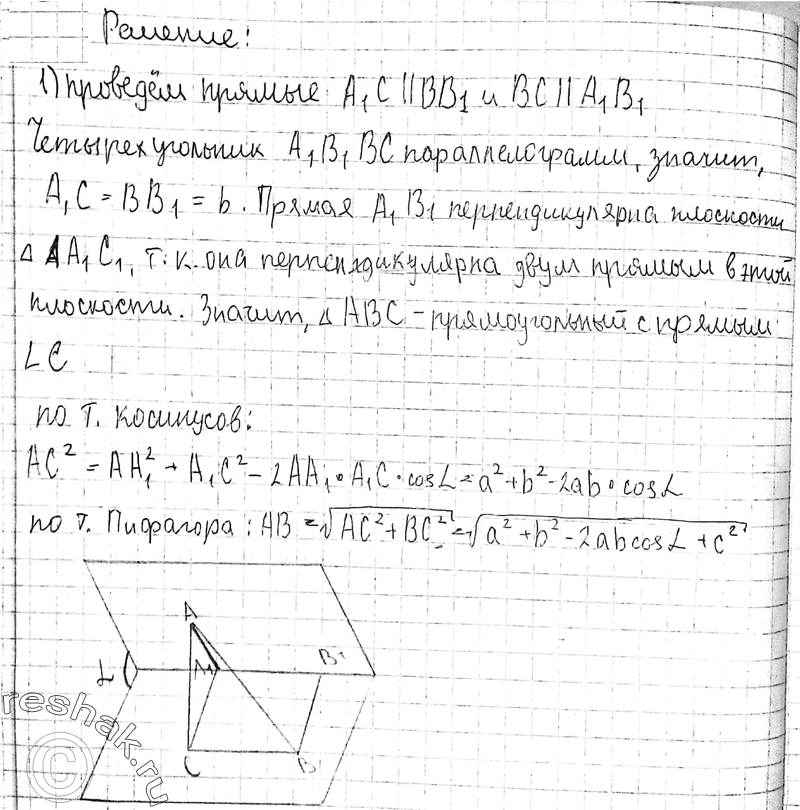 Решение:
1) проведём прямые A₁C || BB₁ и BC || A₁B₁
Четырехугольник A₁B₁BC параллелограмм, значит,
A₁C = BB₁ = b. Прямая A₁B₁ перпендикулярна плоскости
△ AA₁C₁, т.к. она перпендикулярна двум прямым в этой
плоскости. Значит, △ ABC - прямоугольный с прямым
∠C
по т. косинусов:
AC² = AA₁² + A₁C² - 2AA₁ • A₁C • cos∠ = a² + b² - 2ab • cos∠
по т. Пифагора: AB = √AC² + BC² = √a² + b² - 2ab cos∠ + c²
A
B₁
∠
A₁
C
B
reshak.ru
©